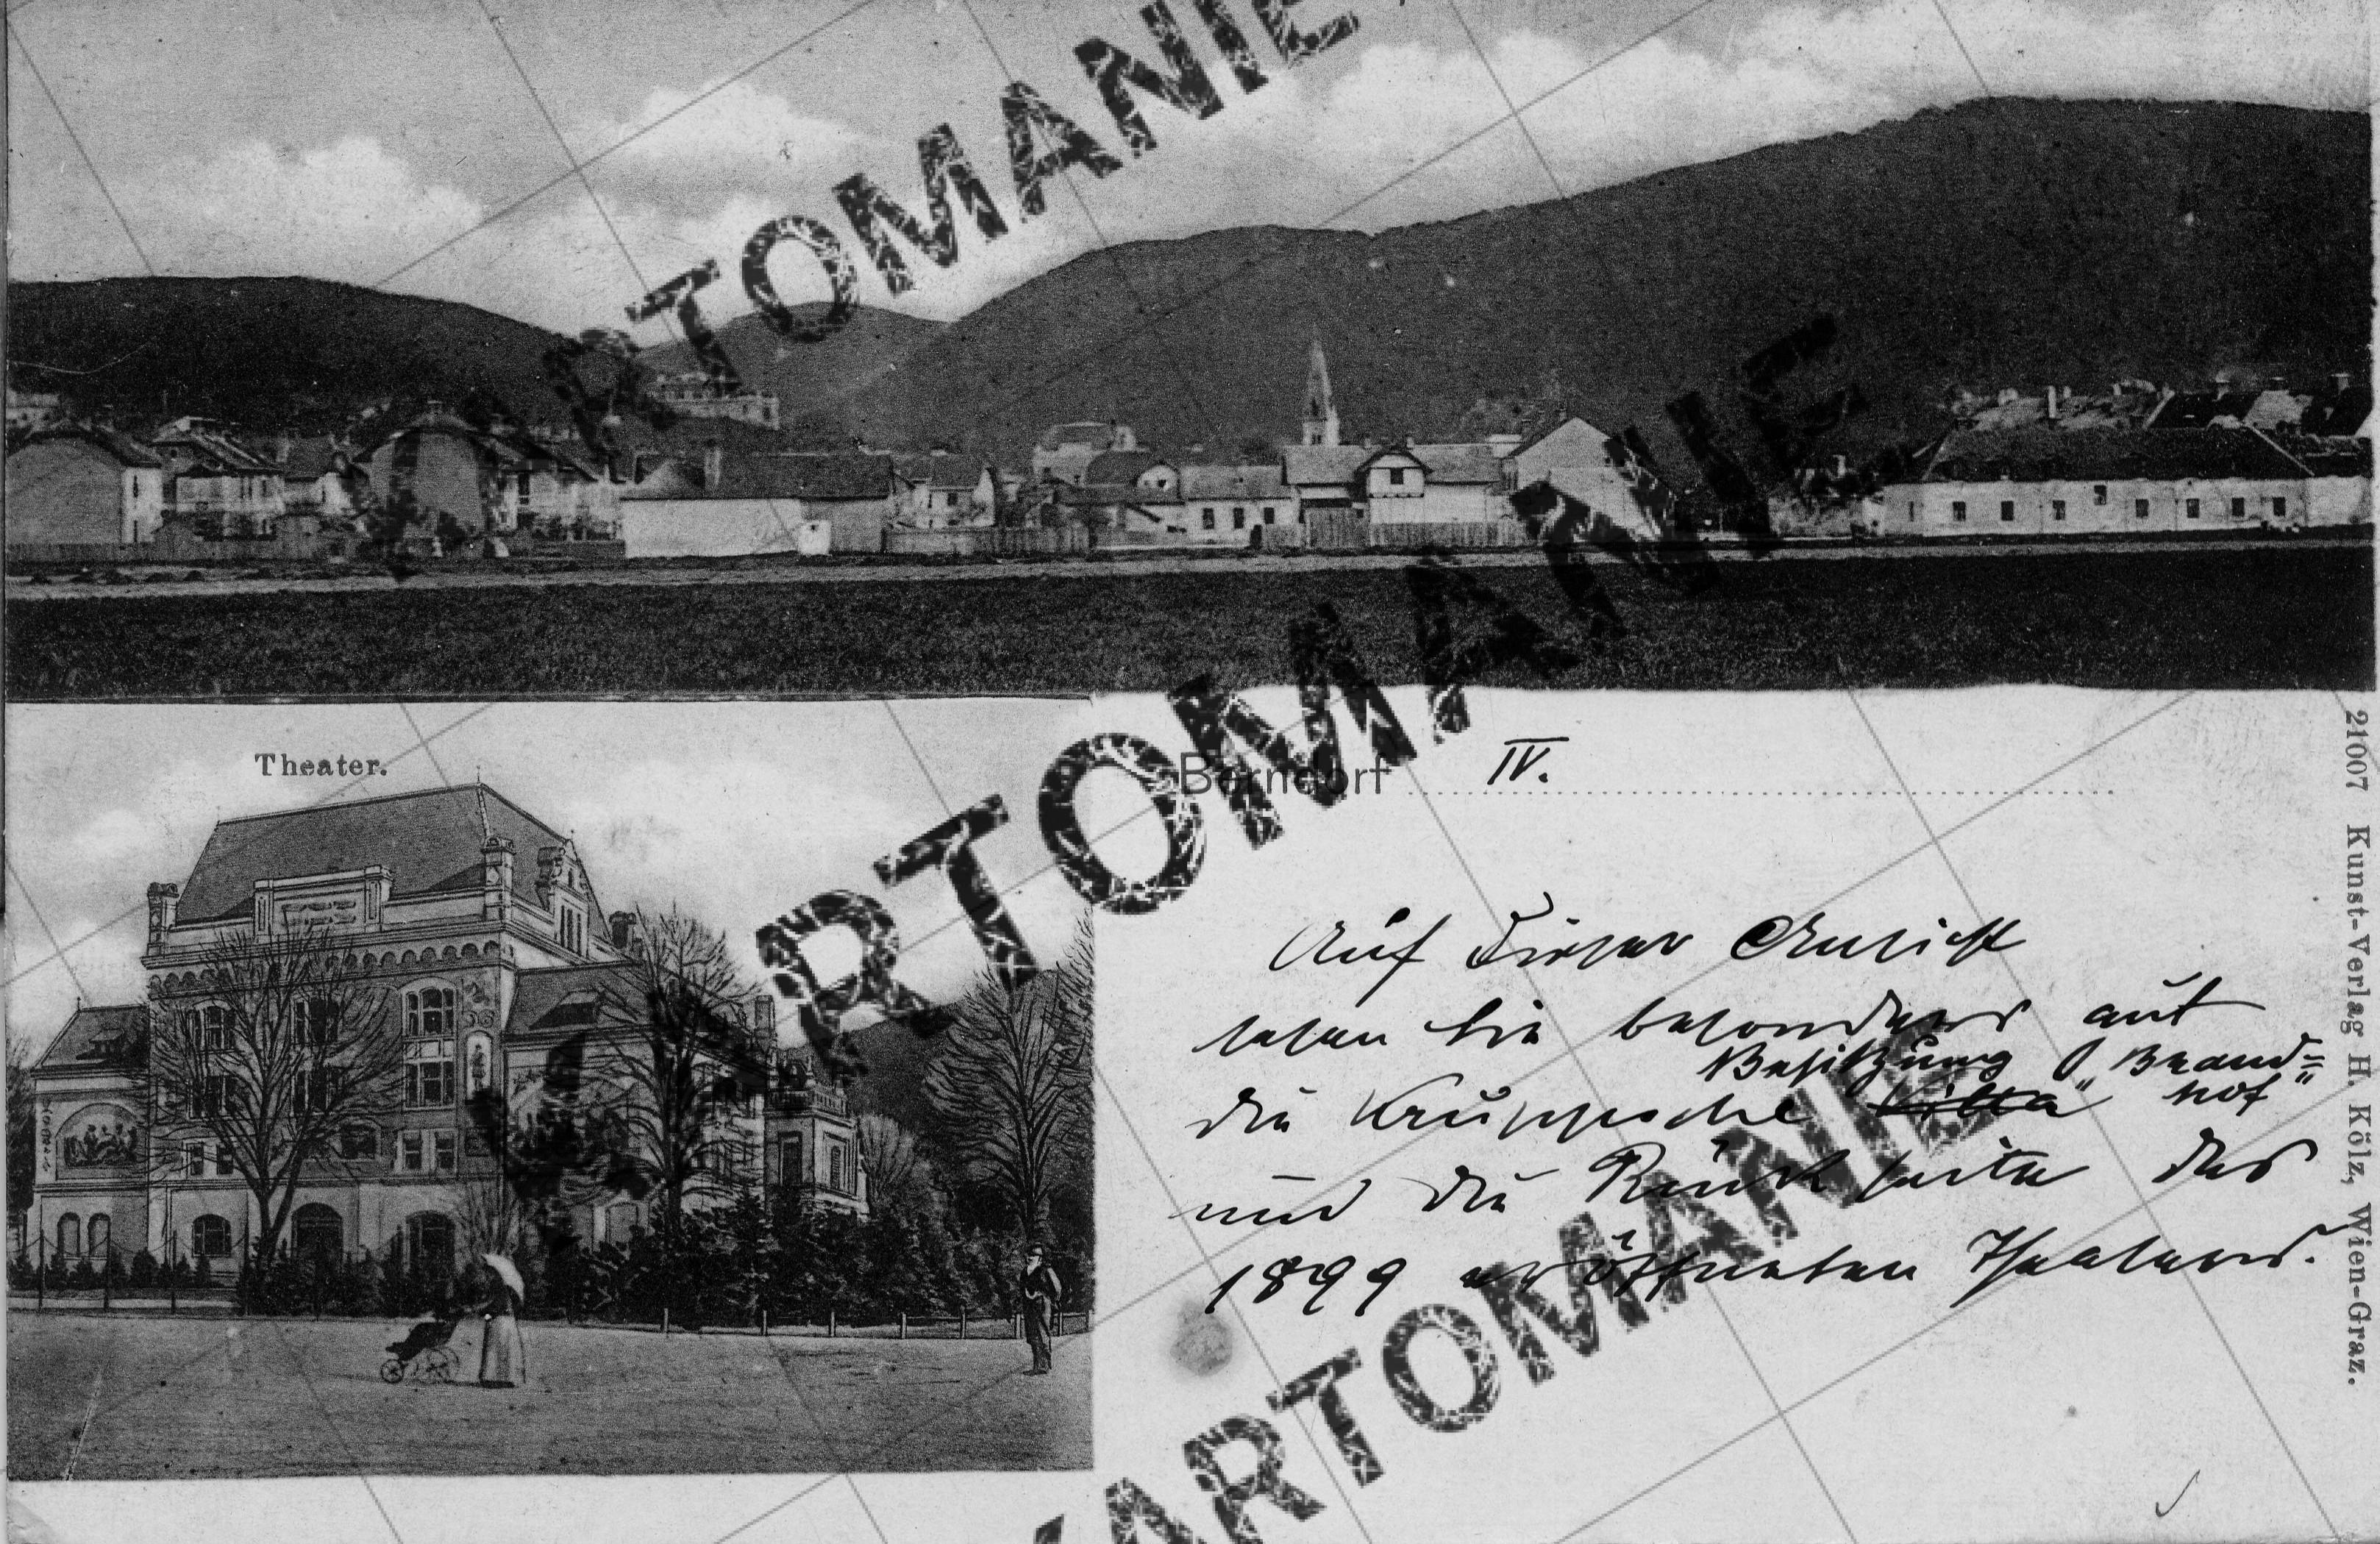 KARTOMANIE
KARTOMANIE
KARTOMANIE
Theater.
Berndorf IV.
Auf dieser Ansicht
sehen Sie besonders gut
Besitzung „Brand=
die Kruppsche Villa hof"
und die Rückseite des
1899 eröffneten Theaters.
21007 Kunst-Verlag H. Kölz, Wien-Graz.